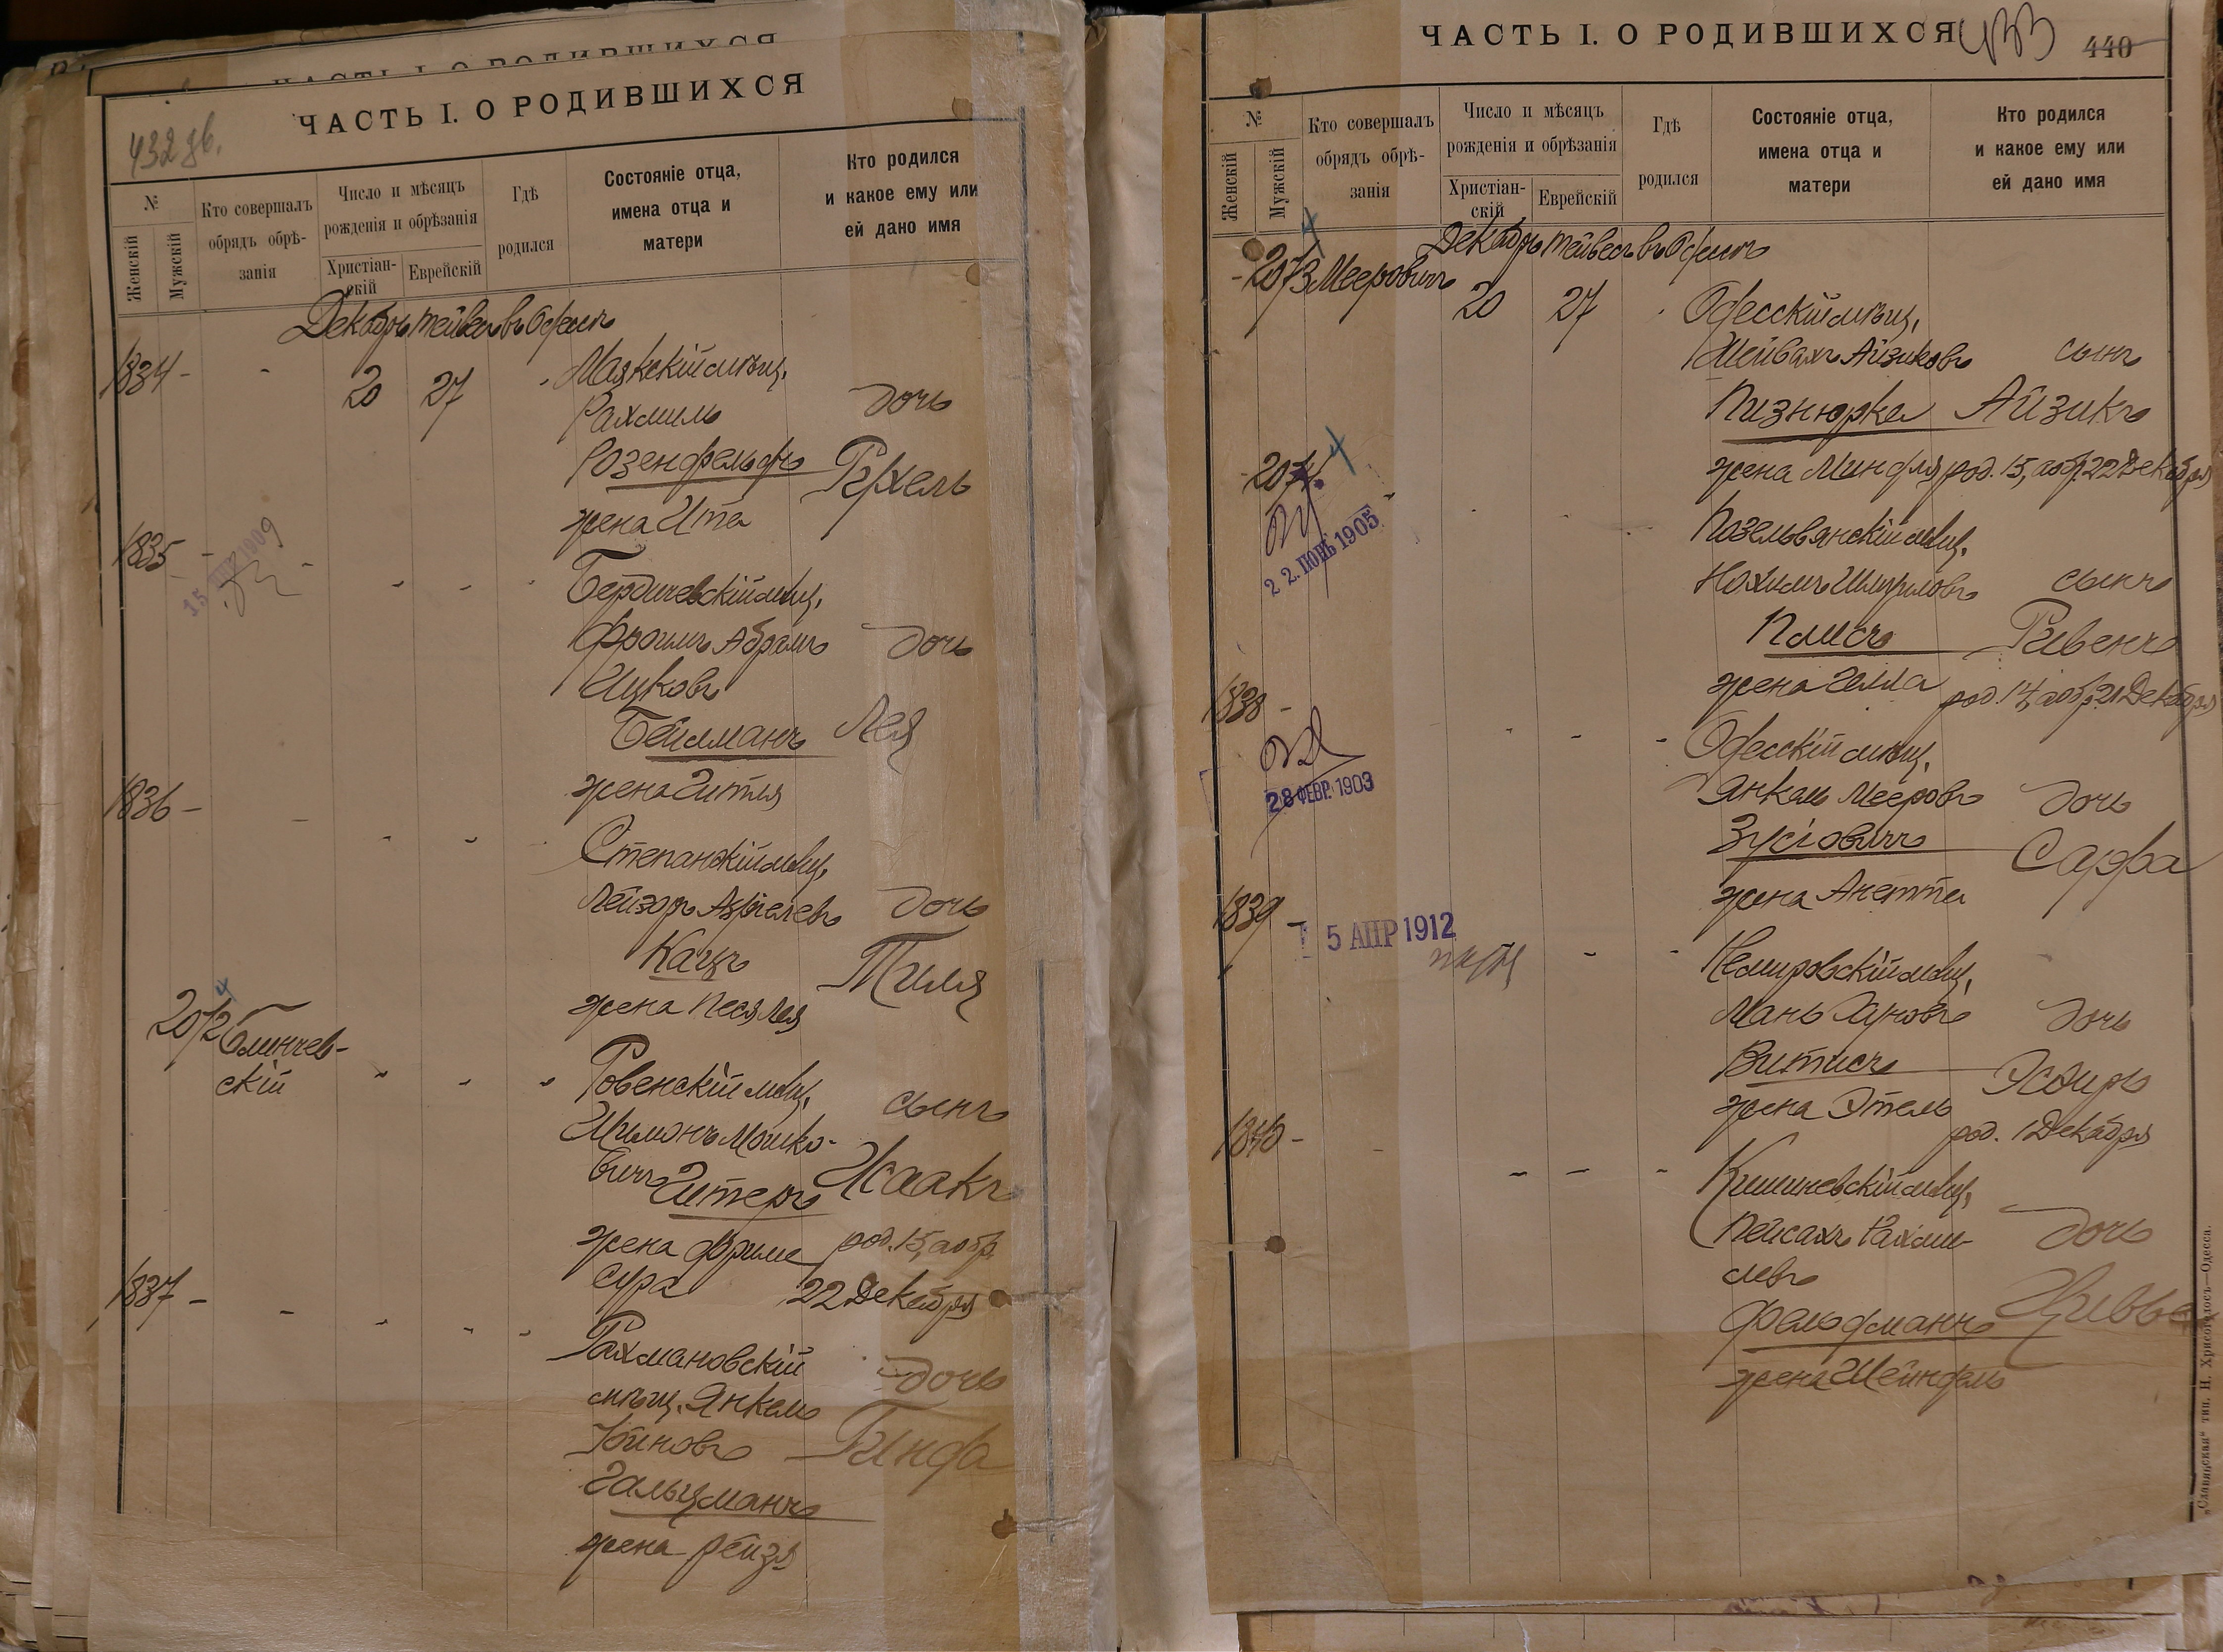 ЧАСТЬ I. О РОДИВШИХСЯ
432 об.
№
Женскій
Мужскій
Кто совершалъ
обрядъ обрѣ-
занія
Число и мѣсяцъ
рожденія и обрѣзанія
Христіан-
скій
Еврейскій
Гдѣ
родился
Состояніе отца,
имена отца и
матери
Кто родился
и какое ему или
ей дано имя
Декабрь тейвесъ въ Одессѣ
1834 - - 20 27 Маякскій мѣщ.
Рахмиль дочь
Розенфельдъ Рухель
жена Ита
1835 -
15 АПР 1909
Бердичевскій мѣщ.
Фроимъ Абрамъ дочь
Ицковъ
Бейлманъ Лея
жена Гитля
1836 -
Степанскій мѣщ.
Лейзоръ Азріелевъ дочь
Кацъ Тиля
жена Песя Лея
2072 Блинчев-
скій
Ровенскій мѣщ. сынъ
Шимонъ Мошко-
вичъ Гитеръ Исаакъ
жена Фрима род. 15, а обр.
Сура 22 Декабря
1837 -
Рахмановскій
мѣщ. Янкель дочь
Юиновъ Гинда
Гальцманъ
жена Рейзя
ЧАСТЬ I. О РОДИВШИХСЯ
433
440
№
Женскій
Мужскій
Кто совершалъ
обрядъ обрѣ-
занія
Число и мѣсяцъ
рожденія и обрѣзанія
Христіан-
скій
Еврейскій
Гдѣ
родился
Состояніе отца,
имена отца и
матери
Кто родился
и какое ему или
ей дано имя
Декабрь тейвесъ въ Одессѣ
- 2073 Мееровичъ 20 27 Одесскій мѣщ.
Шейвахъ Айзиковъ сынъ
Пизнюрка Айзикъ
жена Миндля род. 15, а обр. 22 Декабря
- 2074
22. ІЮНЬ 1905
Козельвянскій мѣщ.
Нохимъ Шмуиловъ сынъ
Клисъ Рувенъ
жена Гелла род. 14, а обр. 21 Декабря
1838 -
28 ФЕВР. 1903
Одесскій мѣщ.
Янкель Мееровъ дочь
Зусіовичъ Сарра
жена Анетта
1839 -
5 АПР 1912
Немировскій мѣщ.
Мань дочь
Витисъ Эсѳирь
жена Этель род. 1 Декабря
1840 -
Кишиневскій мѣщ.
Пейсахъ Рахми- дочь
левъ
Фельдманъ Цивья
жена Шейндель
„Славянская“ тип. Н. Хрисогелосъ—Одесса.